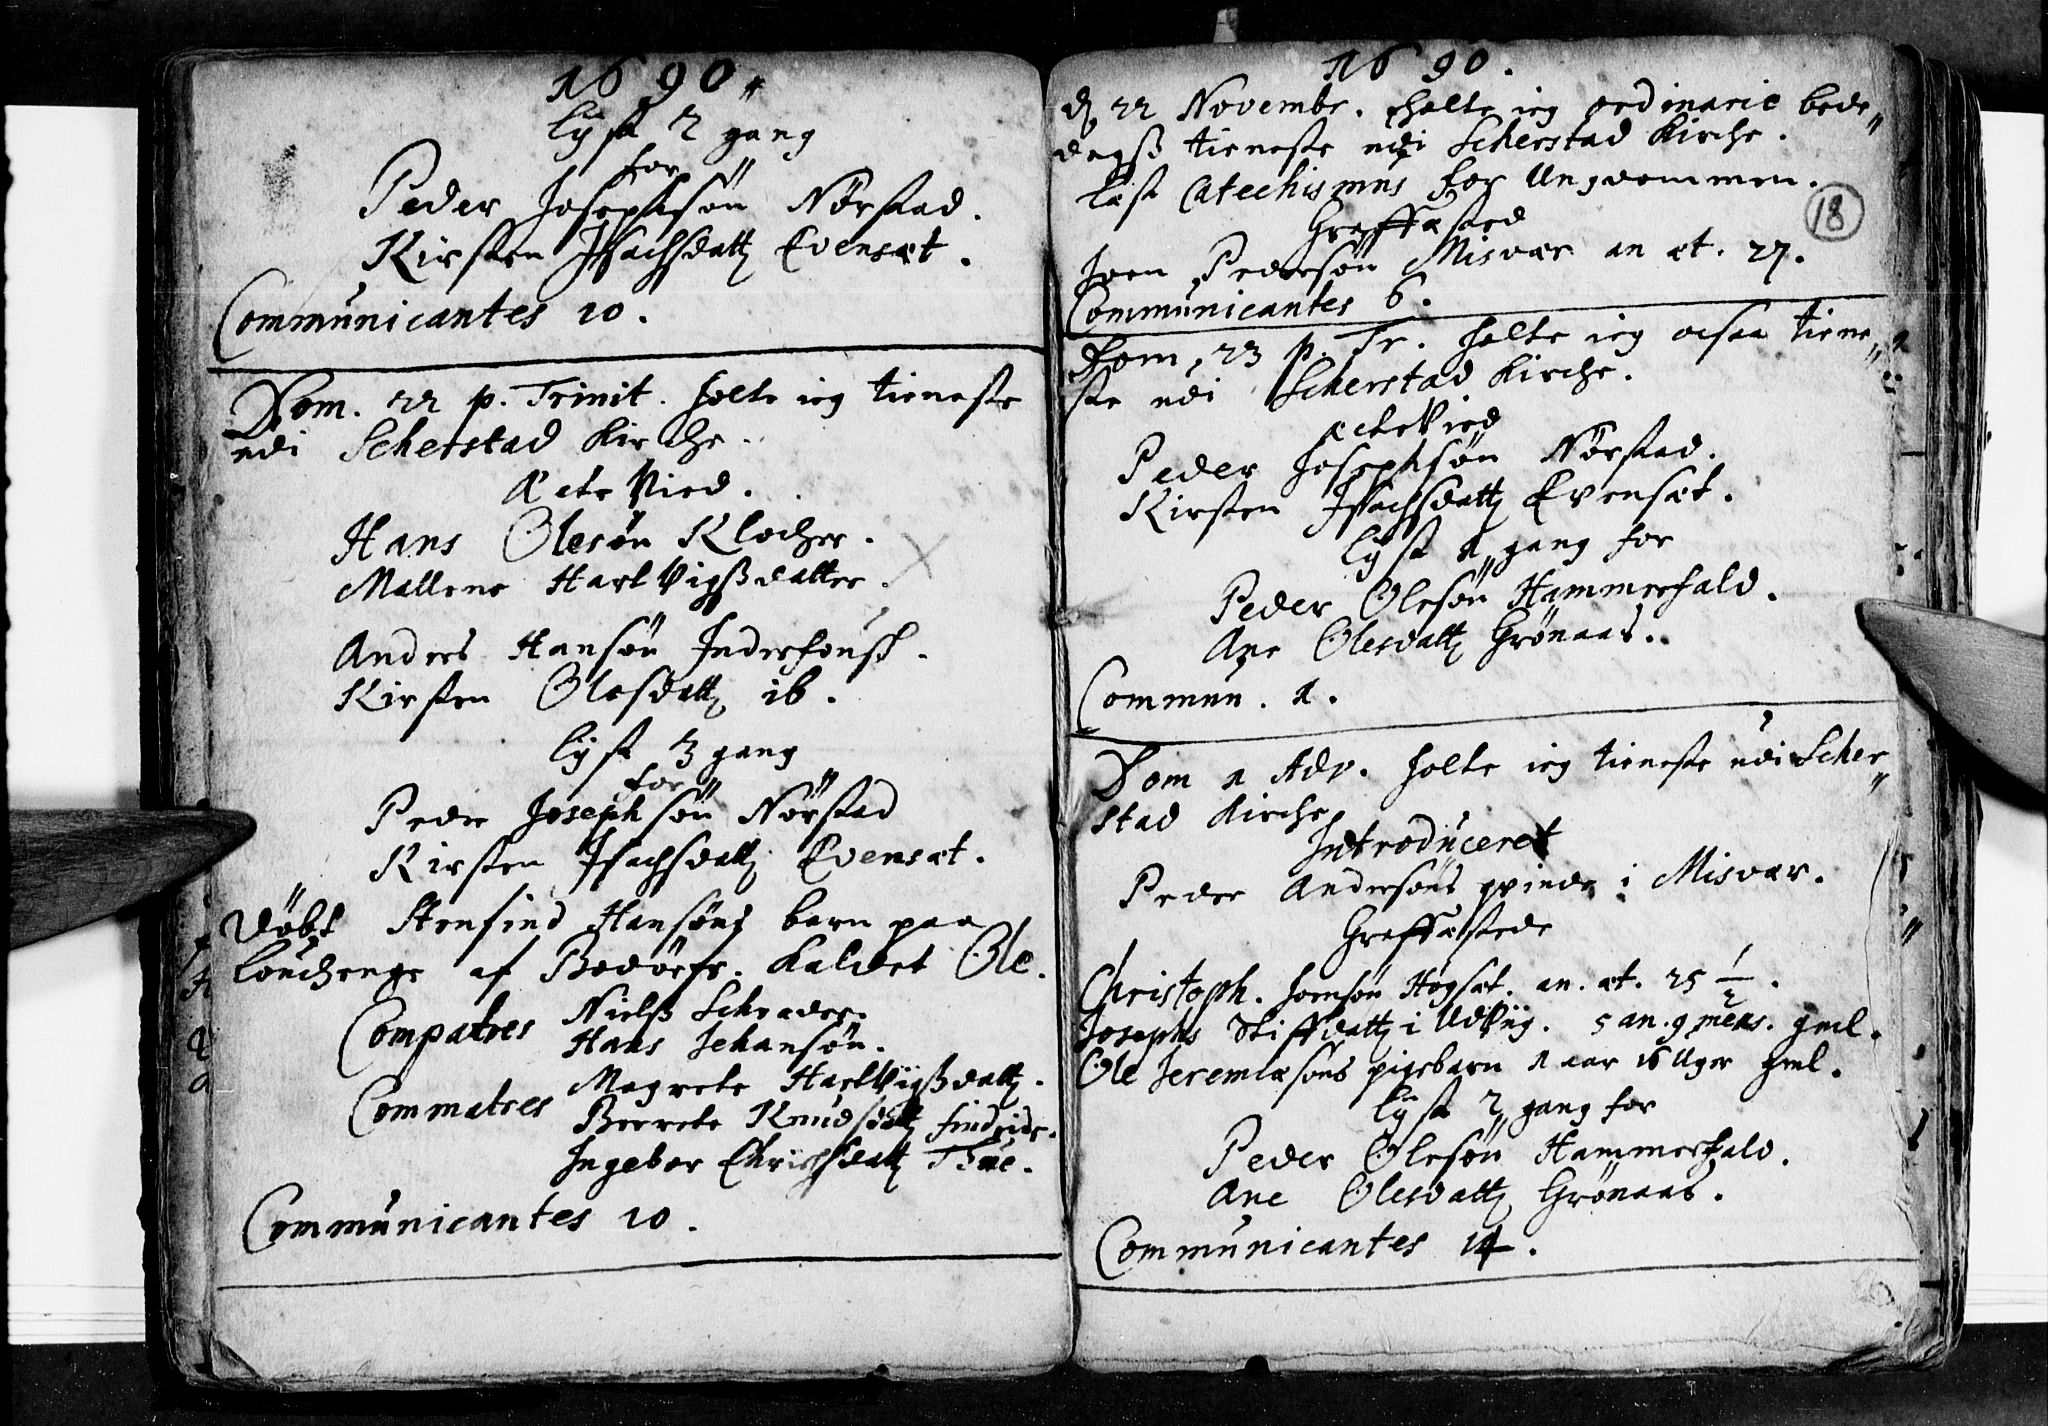 1690.
lyst 2 gang
for
Peder Josephsøn Nørstad.
Kirsten Isachsdatt Evensæt.
Communicantes 10.
Dom. 22 p. Trinit. holte ieg tieneste
udi Scherstad Kirche.
Ecte Vied.
Hans Olesøn Klocher.
Mallene HartVigsdatter.
Anders Hansøn Inderhousß.
Kirsten Olesdatt ib.
lyst 3 gang
for
Peder Josephsøn Nørstad
Kirsten Isachsdatt Evensæt.
Døbt Stenfind Hansøns barn paa
af Bodøefr. Kaldet Ole.
Compatres Nielß Schrader.
Hans Iohansøn.
Commatres Magrete HartVigßdatt.
Berrete Knudsdatt
Ingebor Erichsdatt
Communicantes 10.
1690.
d. 22 Novembr. holte ieg ordinarie bede
dagß tieneste udi Scherstad Kirche.
læst Catechismus for Ungdommen.
18
Graffæsted
Joen Pedersøn Misvær an æt. 27.
Communicantes 6.
Dom. 23 p. Tr. holte ieg ocsaa tiene
ste udi Scherstad Kirche.
ecteVied
Peder Josephsøn Nørstad.
Kirsten Isachsdatt Evensæt.
lyst 1 gang for
Peder Olesøn Hammerfald.
Ane Olesdatt Grønaas.
Commun. 1.
Dom 1 Adv. holte ieg tieneste udi Scher
stad Kirche
Introduceret
Peder Andersøns qvinde i Misvær.
Graffæstede
Christoph. Joensøn Høgsæt. an. æt. 25 1/2.
Josephs Stiffdatt i UdViig. 5 an. 9 mens. gml.
Ole Jeremiæsøns pigebarn 1 aar 16 Uger gml.
lyst 2 gang for
Peder Olesøn Hammerfald.
Ane Olesdatt Grönaas.
Communicantes 14.